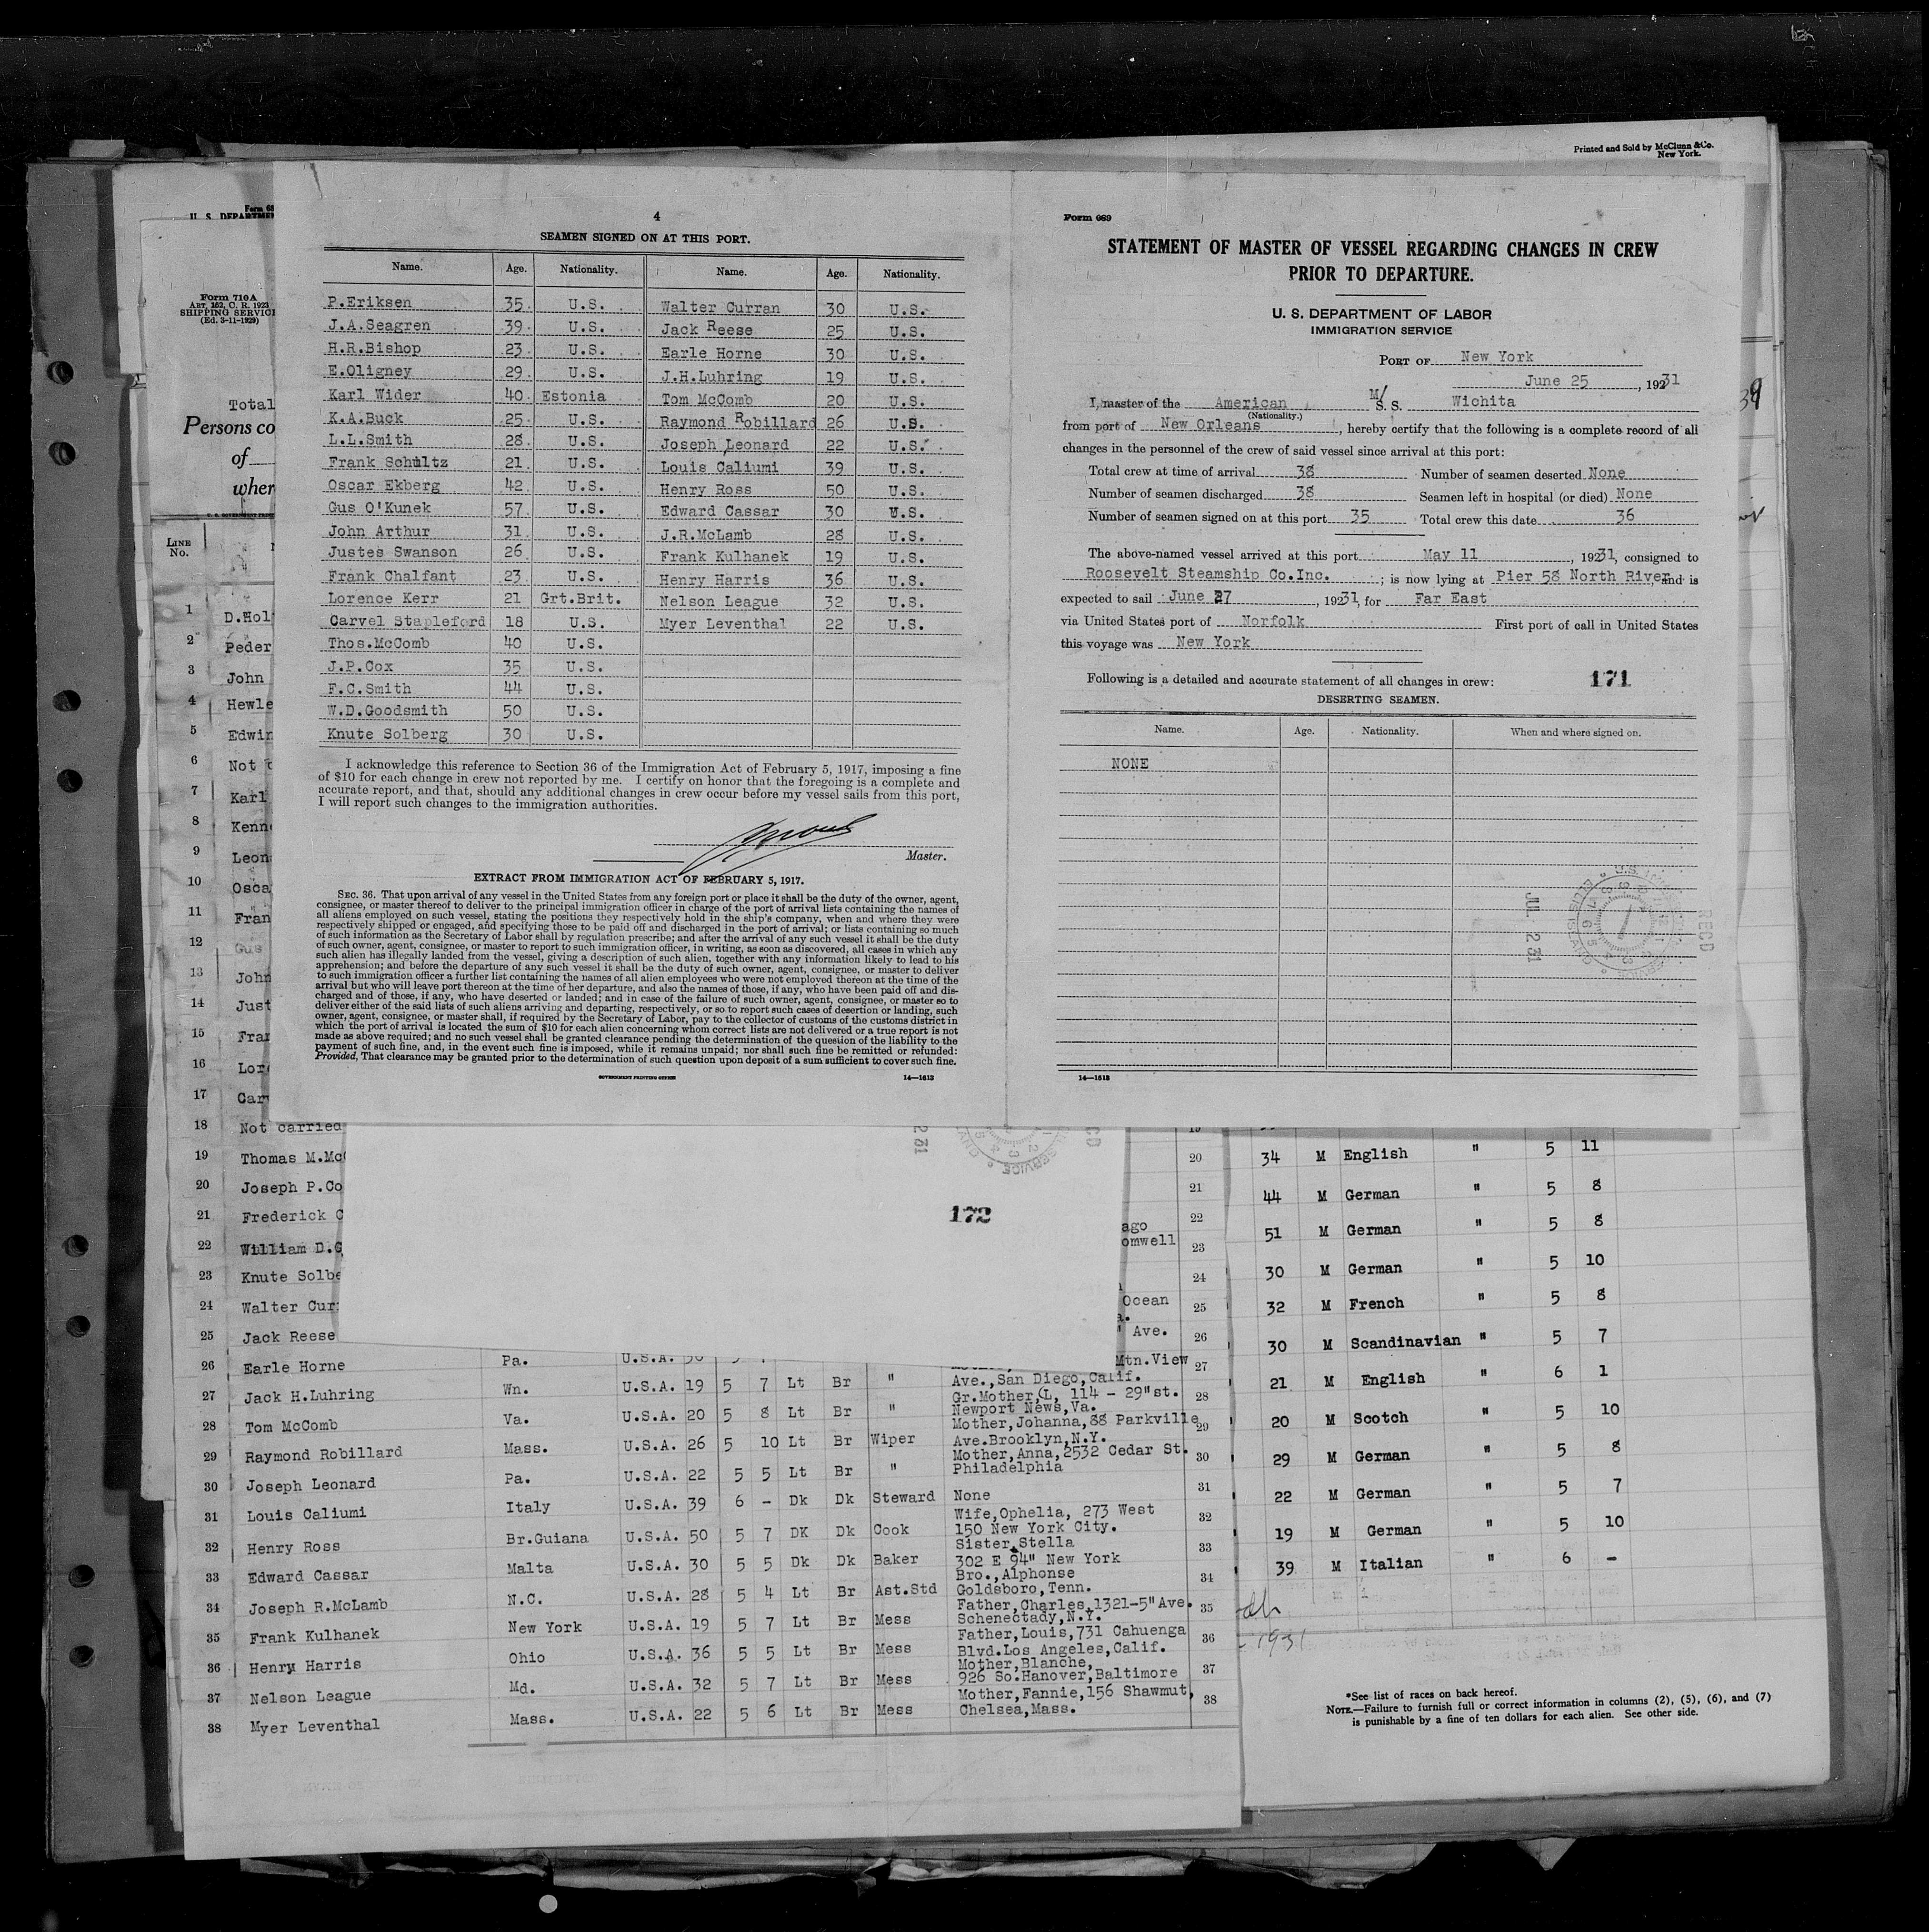 Printed and Sold by McClunn & Co.
New York.
4
SEAMEN SIGNED ON AT THIS PORT.
Name. Age. Nationality. Name. Age. Nationality.
P.Eriksen 35 U.S. Walter Curran 30 U.S.
J.A.Seagren 39 U.S. Jack Reese 25 U.S.
H.R.Bishop 23 U.S. Earle Horne 30 U.S.
E.Oligney 29 U.S. J.H.Luhring 19 U.S.
Karl Wider 40 Estonia Tom McComb 20 U.S.
K.A.Buck 25 U.S. Raymond Robillard 26 U.S.
L.L.Smith 28 U.S. Joseph Leonard 22 U.S.
Frank Schultz 21 U.S. Louis Caliumi 39 U.S.
Oscar Ekberg 42 U.S. Henry Ross 50 U.S.
Gus O'Kunek 57 U.S. Edward Cassar 30 U.S.
John Arthur 31 U.S. J.R.McLamb 28 U.S.
Justes Swanson 26 U.S. Frank Kulhanek 19 U.S.
Frank Chalfant 23 U.S. Henry Harris 36 U.S.
Lorence Kerr 21 Grt.Brit. Nelson League 32 U.S.
Carvel Stapleford 18 U.S. Myer Leventhal 22 U.S.
Thos.McComb 40 U.S.
J.P.Cox 35 U.S.
F.C.Smith 44 U.S.
W.D.Goodsmith 50 U.S.
Knute Solberg 30 U.S.
I acknowledge this reference to Section 36 of the Immigration Act of February 5, 1917, imposing a fine
of $10 for each change in crew not reported by me. I certify on honor that the foregoing is a complete and
accurate report, and that, should any additional changes in crew occur before my vessel sails from this port,
I will report such changes to the immigration authorities.
Master.
EXTRACT FROM IMMIGRATION ACT OF FEBRUARY 5, 1917.
SEC. 36. That upon arrival of any vessel in the United States from any foreign port or place it shall be the duty of the owner, agent,
consignee, or master thereof to deliver to the principal immigration officer in charge of the port of arrival lists containing the names of
all aliens employed on such vessel, stating the positions they respectively hold in the ship's company, when and where they were
respectively shipped or engaged, and specifying those to be paid off and discharged in the port of arrival; or lists containing so much
of such information as the Secretary of Labor shall by regulation prescribe; and after the arrival of any such vessel it shall be the duty
of such owner, agent, consignee, or master to report to such immigration officer, in writing, as soon as discovered, all cases in which any
such alien has illegally landed from the vessel, giving a description of such alien, together with any information likely to lead to his
apprehension; and before the departure of any such vessel it shall be the duty of such owner, agent, consignee, or master to deliver
to such immigration officer a further list containing the names of all alien employees who were not employed thereon at the time of the
arrival but who will leave port thereon at the time of her departure, and also the names of those, if any, who have been paid off and dis-
charged and of those, if any, who have deserted or landed; and in case of the failure of such owner, agent, consignee, or master so to
deliver either of the said lists of such aliens arriving and departing, respectively, or so to report such cases of desertion or landing, such
owner, agent, consignee, or master shall, if required by the Secretary of Labor, pay to the collector of customs of the customs district in
which the port of arrival is located the sum of $10 for each alien concerning whom correct lists are not delivered or a true report is not
made as above required; and no such vessel shall be granted clearance pending the determination of the question of the liability to the
payment of such fine, and, in the event such fine is imposed, while it remains unpaid; nor shall such fine be remitted or refunded:
Provided, That clearance may be granted prior to the determination of such question upon deposit of a sum sufficient to cover such fine.
GOVERNMENT PRINTING OFFICE 14—1613
Form 689
STATEMENT OF MASTER OF VESSEL REGARDING CHANGES IN CREW
PRIOR TO DEPARTURE.
U. S. DEPARTMENT OF LABOR
IMMIGRATION SERVICE
PORT OF New York
June 25, 1931
I, master of the American M/S. S. Wichita
(Nationality.)
from port of New Orleans, hereby certify that the following is a complete record of all
changes in the personnel of the crew of said vessel since arrival at this port:
Total crew at time of arrival 38 Number of seamen deserted None
Number of seamen discharged 38 Seamen left in hospital (or died) None
Number of seamen signed on at this port 35 Total crew this date 36
The above-named vessel arrived at this port May 11, 1931, consigned to
Roosevelt Steamship Co.Inc.; is now lying at Pier 58 North River and is
expected to sail June 27, 1931, for Far East
via United States port of Norfolk First port of call in United States
this voyage was New York
Following is a detailed and accurate statement of all changes in crew: 171
DESERTING SEAMEN.
Name. Age. Nationality. When and where signed on.
NONE
REC'D
JUL 2 31
14—1613
U. S. DEPARTMEN
Form 710A
ART. 152, C. R. 1923
SHIPPING SERVICE
(Ed. 3-11-1929)
Total
Persons co
of
wher
LINE
No.
1 D.Hol
2 Peder
3 John
4 Hewle
5 Edwin
6 Not
7 Karl
8 Kenn
9 Leon
10 Osca
11 Fran
12 Gus
13 John
14 Just
15 Fran
16 Lor
17 Car
18 Not carried
19 Thomas M.Mc
20 Joseph P.Co
21 Frederick C
22 William D.G
23 Knute Solbe
24 Walter Cur
25 Jack Reese
172
2 31
ago
omwell
Ocean
Ave.
Mtn.View
26 Earle Horne Pa. U.S.A. 30
27 Jack H.Luhring Wn. U.S.A. 19 5 7 Lt Br " Ave.,San Diego,Calif.
Gr.Mother,L, 114 - 29"st.
28 Tom McComb Va. U.S.A. 20 5 8 Lt Br " Newport News,Va.
Mother,Johanna,88 Parkville
29 Raymond Robillard Mass. U.S.A. 26 5 10 Lt Br Wiper Ave.Brooklyn,N.Y.
Mother,Anna,2532 Cedar St.
30 Joseph Leonard Pa. U.S.A. 22 5 5 Lt Br " Philadelphia
31 Louis Caliumi Italy U.S.A. 39 6 - Dk Dk Steward None
Wife,Ophelia, 273 West
32 Henry Ross Br.Guiana U.S.A. 50 5 7 DK Dk Cook 150 New York City.
Sister,Stella
33 Edward Cassar Malta U.S.A. 30 5 5 Dk Dk Baker 302 E 94" New York
Bro.,Alphonse
34 Joseph R.McLamb N.C. U.S.A. 28 5 4 Lt Br Ast.Std Goldsboro,Tenn.
Father,Charles,1321-5"Ave.
35 Frank Kulhanek New York U.S.A. 19 5 7 Lt Br Mess Schenectady,N.Y.
Father,Louis,731 Cahuenga
36 Henry Harris Ohio U.S.A. 36 5 5 Lt Br Mess Blvd.Los Angeles,Calif.
Mother,Blanche,
37 Nelson League Md. U.S.A. 32 5 7 Lt Br Mess 926 So.Hanover,Baltimore
Mother,Fannie,156 Shawmut,
38 Myer Leventhal Mass. U.S.A. 22 5 6 Lt Br Mess Chelsea,Mass.
19
20 34 M English " 5 11
21 44 M German " 5 8
22 51 M German " 5 8
23 30 M German " 5 10
24 32 M French " 5 8
25 30 M Scandinavian " 5 7
26 21 M English " 6 1
27 20 M Scotch " 5 10
28 29 M German " 5 8
29 22 M German " 5 7
30 19 M German " 5 10
31 39 M Italian " 6 -
32
33
34
35
36
37
38
1931
*See list of races on back hereof.
NOTE.—Failure to furnish full or correct information in columns (2), (5), (6), and (7)
is punishable by a fine of ten dollars for each alien. See other side.